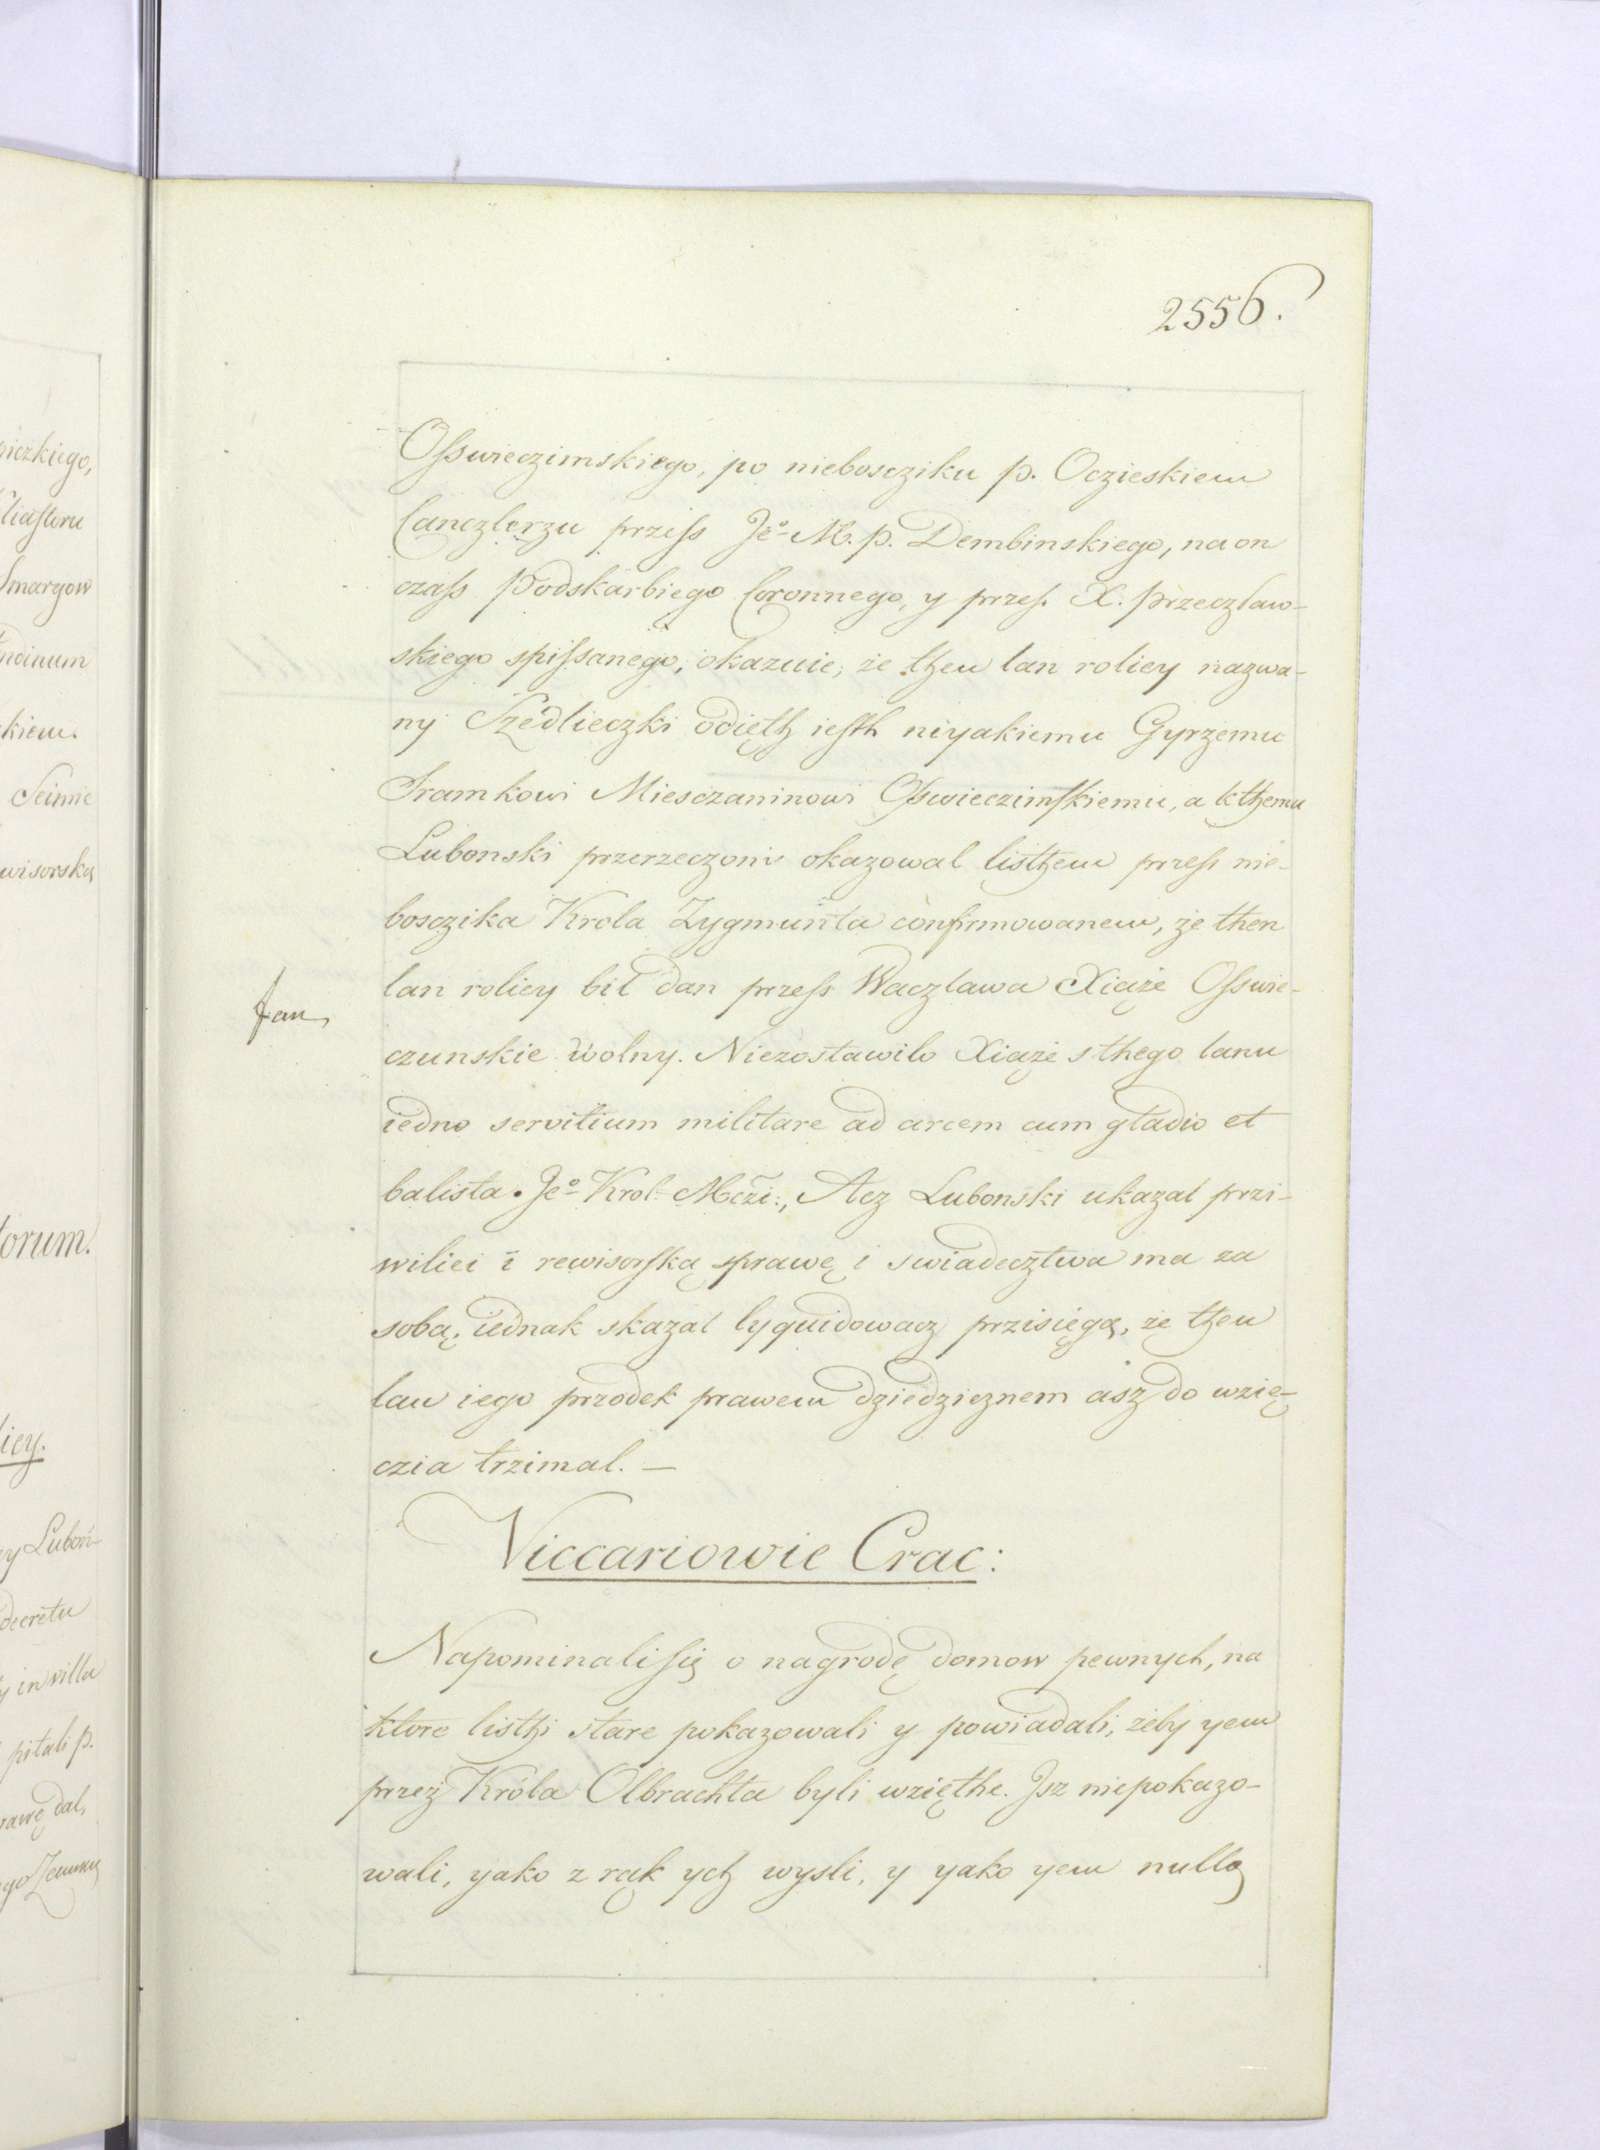 2556.
Ossswieczimskiego, po nieboscziku p. Oczieskiem
Canczlerzu przess Je͠o M. p. Dembinskiego, na on
czass Podskarbiego Coronnego, y przes. X. Przeczlaw-
skiego spissanego, okazuie, że then lan roliey nazwa-
ny Szedlieczki odięth iesth niyakiemu Gyrzemu
Sramkowi Miesczaninowi Osswieczimskiemu, a kthemu
Lubonski przerzeczoni okazowal listhem przess nie-
bosczika Krola Zygmunta confirmowanem, że then
lan roliey bil dan przess Waczlawa Xiąże Osswie-
czunskie wolny. Niezostawilo Xiąże sthego lanu
iedno servitium militare ad arcem cum gladio et
balista. Jeo Krol. Mczi:, Acz Lubonski ukazal przi-
wiliei i rewisorską sprawę i swiadecztwa ma za
sobą, iednak skazal lyquidowacz przisięgą, że then
lan iego przodek prawem dziedzicznem asz do wzię-
czia trzimal. —
Viccariowie Crac:
Napominali się o nagrodę domow pewnych, na
ktore listhi stare pokazowali y powiadali, żeby yem
przez Króla Olbrachta byli wzięthe. Jsz niepokazo-
wali, yako z rąk ych wysli, y yako yem nullą
fan
niezkiego,
Smaryow
kiem.
Seimie
wisorską
torum.
liey.
y Luboń-
decretu
y in villa
pitali p.
awę dal,